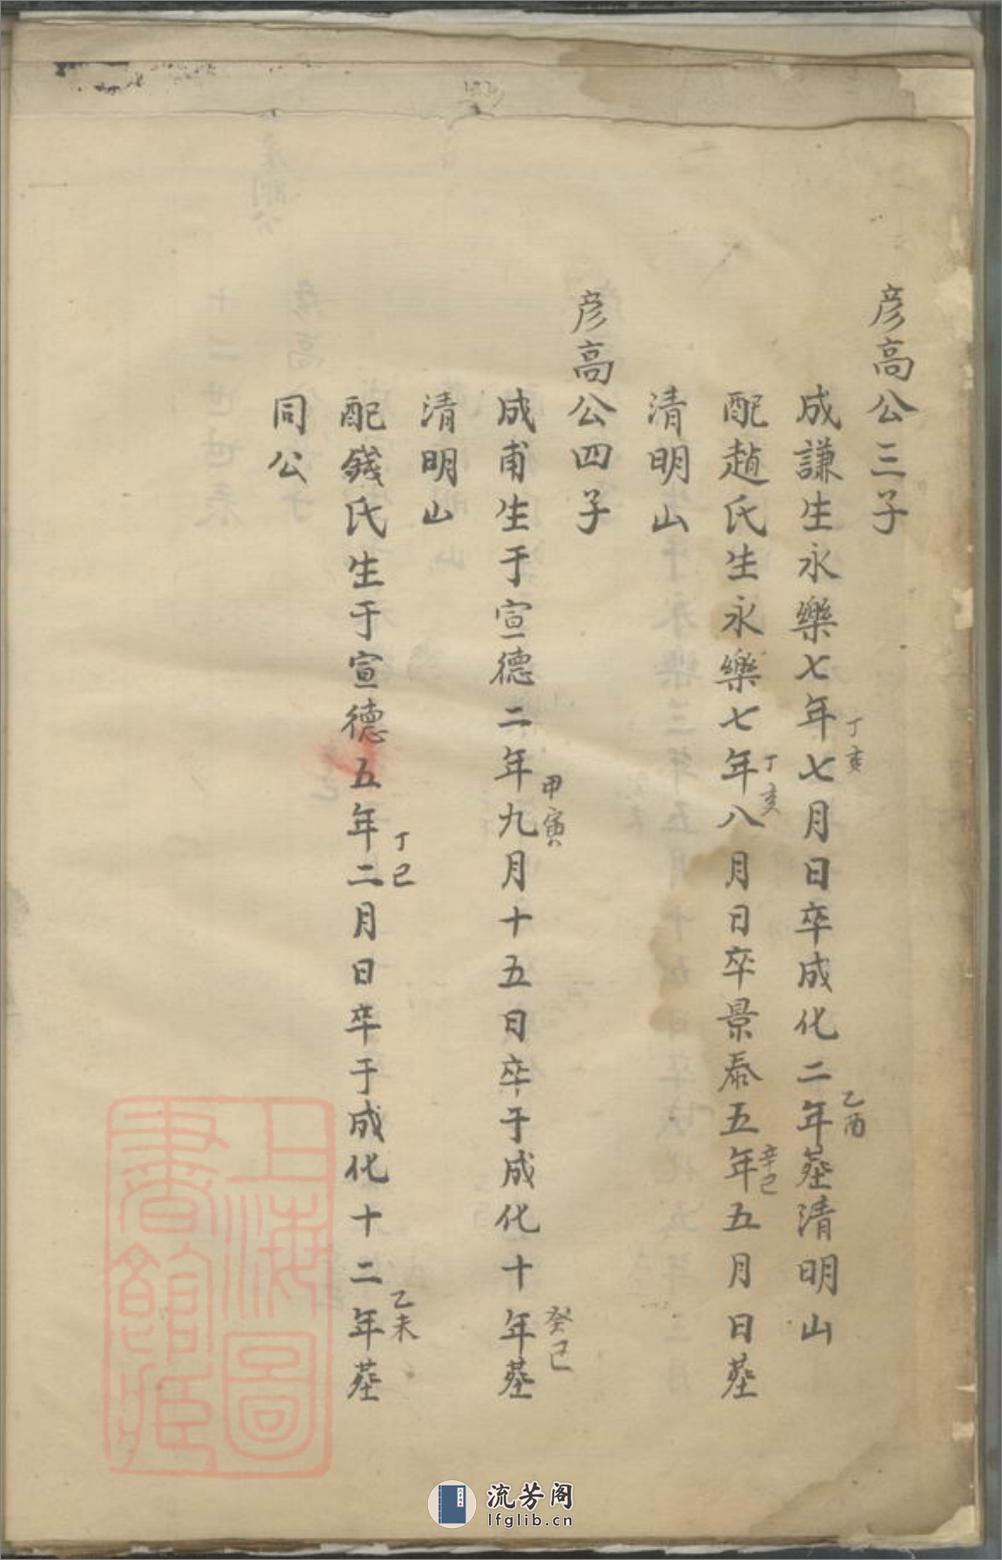 彦高公三子
成謙生永樂七年七月日卒成化二年塟清明山
丁亥
乙酉
配趙氏生永樂七年八月日卒景泰五年五月日塟
丁亥
辛巳
清明山
彦高公四子
成甫生于宣德二年九月十五日卒于成化十年塟
甲寅
癸巳
清明山
配錢氏生于宣德五年二月日卒于成化十二年塟
丁巳
乙未
同公
上海圖
書館藏
流芳阁
lfglib.cn